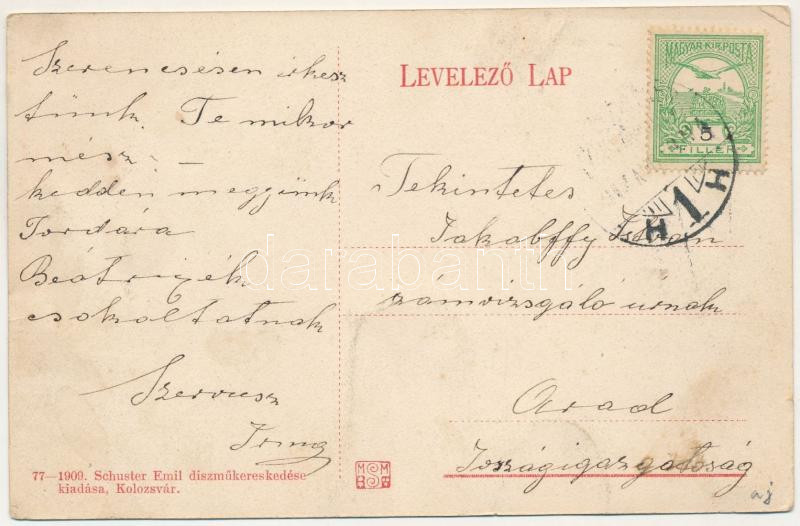 Szerencsésen érkez
tünk. Te mikor
mész –
kedden megyünk
Tordára
csokoltatnak
Szervusz
Irma
77—1909. Schuster Emil diszműkereskedése
kiadása, Kolozsvár.
LEVELEZŐ LAP
MAGYAR·KIR·POSTA
5
FILLÉR
H 1 H
Tekintetes
Jakabffy Istvan
számvizsgáló úrnak
Arad
Jószágigazgatóság
darabanth
aj